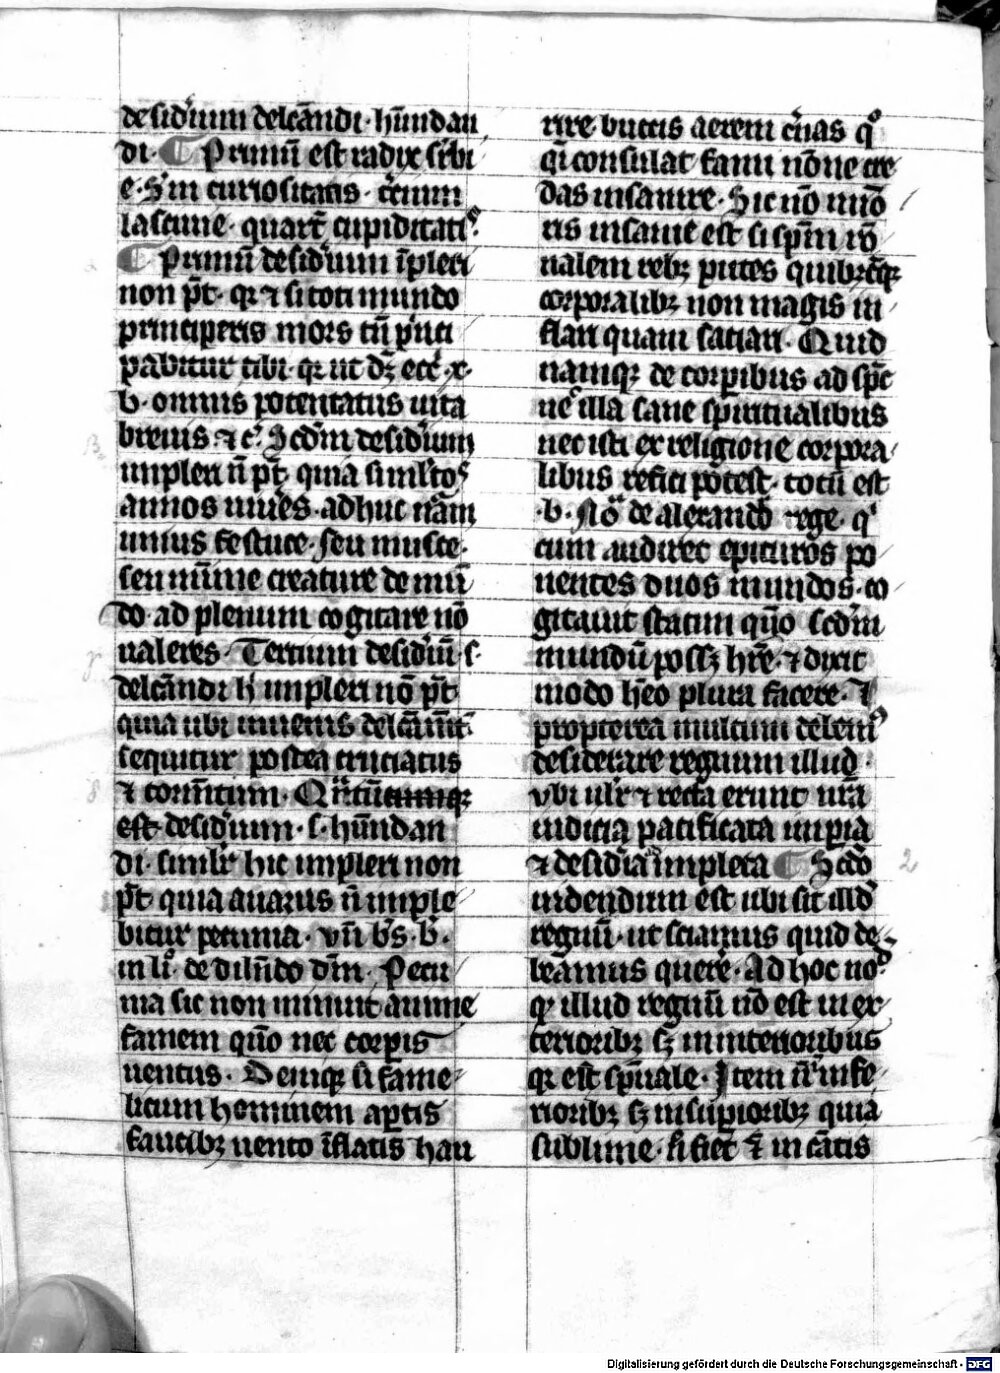 desid'ium delc̄andi · hūndan
di · ¶ Primū est radix sr̄bi
e · S'm curiositatis · t'cium
lasciuie · quart̄ cupiditatis ·
¶ Primū desid'ium īpleri
non p̄t · qr ⁊ si toti mundo
principeris mors tn̄ p'nci
pabitur tibi · qr ut dʒ ecc̄ · x ·
b · omnis potentatus uita
breuis · ⁊ c̄ · Scdm desid'ium
impleri n̄ p̄t quia simlr tos
annos uiues · adhuc nām
unius festuce · seu musce ·
seu mīme creature de mū
do · ad plenum cogitare nō
ualeres · Tertium desid'iū · s ·
delc̄andi h' impleri nō p̄t
quia ubi inuenis delc̄am̄t
sequitur postea cruciatus
⁊ tormn̄tum · Qr̄tū
est desid'ium · s · hūndan
di · simlr hic impleri non
p̄t quia auarus n̄ imple
bitur pecunia · vn̄ b's · b ·
in li° · de dilīndo dm̄ · Pecu
nia sic non minuit anime
famem quō nec corpis
uentus · Deniqʒ si fame
licum hominem aptis
faucibʒ uento īflatis hau
rire buccis aerem c'nas q°
q̄i consulat fami nōne cre
das insanire · Sic nō mīo
ris insanie est si spm̄ rō
nalem rebʒ putes quibʒcūqʒ
corporalibʒ non magis in
flari quam saciari · Quid
namqʒ de corpibus ad spc̄
nec illa sane spiritualibus
nec isti ex religione corpora
libus refici potest · totū est
· b · Nō de alexandō rege · q'
cum audiret epicuros po
nentes duos mundos · co
gitauit statim quō scd'm
mundū possʒ hr̄e · ⁊ dixit
modo h̄eo plura facere · I
propterea multum delem°
desiderare regnum illud ·
vbi ulr ⁊ recta erunt nr̄a
iudicia pacificata impia
⁊ desid'ia impleta ¶ Scdo
uidendum est ubi sit illd'
regnū · ut sciamus quid de
beamus quere · Ad hoc no°
qʒ illud regnū nō est in ex
terioribʒ sʒ in interioribus
qr est sp̄uale · Item nō infe
rioribʒ sʒ in supioribʒ quia
sublime · si fiet
Digitalisierung gefördert durch die Deutsche Forschungsgemeinschaft - DFG